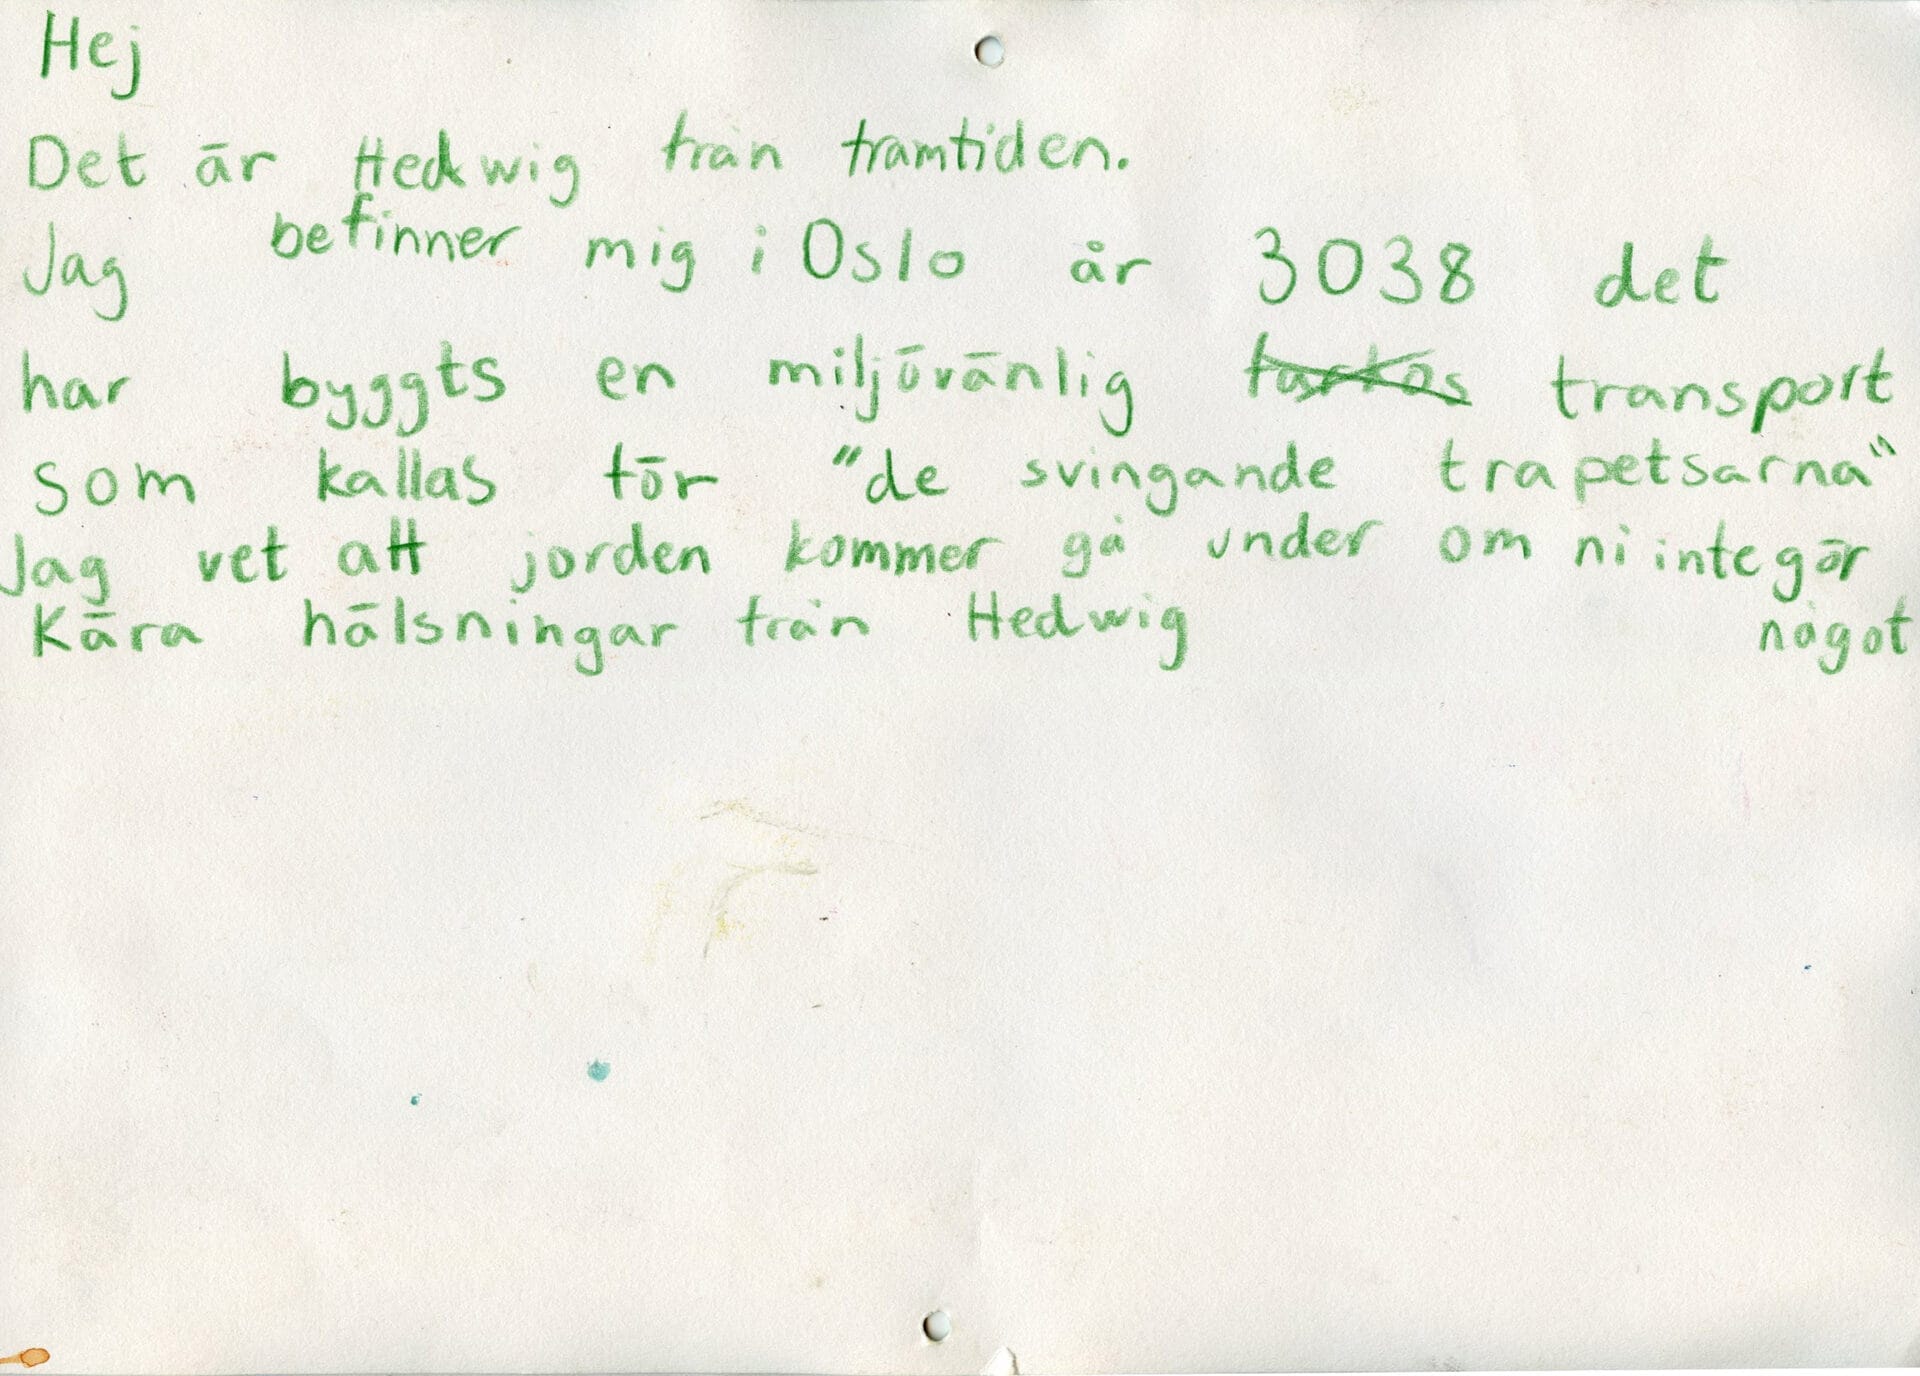 Hej
Det är Hedwig från framtiden.
Jag befinner mig i Oslo år 3038 det
har byggts en miljövänlig transport
som kallas för "de svingande trapetsarna"
Jag vet att jorden kommer gå under om ni inte gör
något
Kära hälsningar från Hedwig